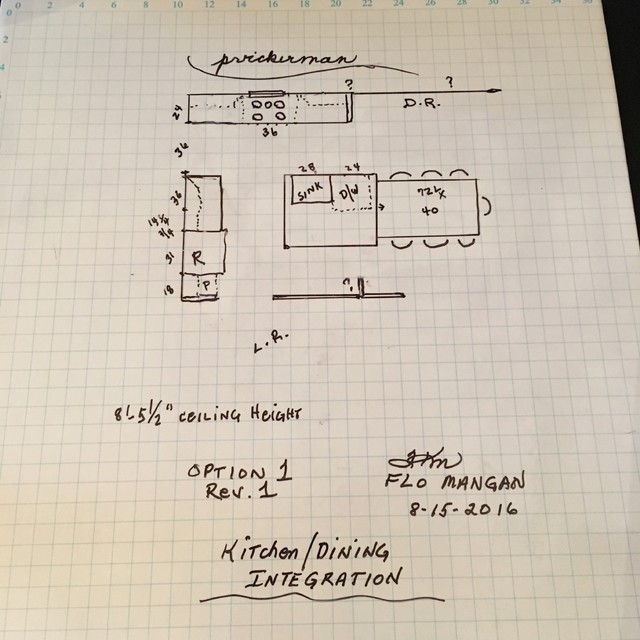 0 2 4 6 8 10 12 14 16 18 20 22 24 26 28 30
2
4
prickerman
? ?
D.R.
24
36
36
28 24
SINK D/W
72L X
40
36
R
31
18 P
?
L.R.
8'-5 1/2" CEILING HEIGHT
OPTION 1
Rev. 1
FLO MANGAN
8-15-2016
Kitchen/DINING
INTEGRATION